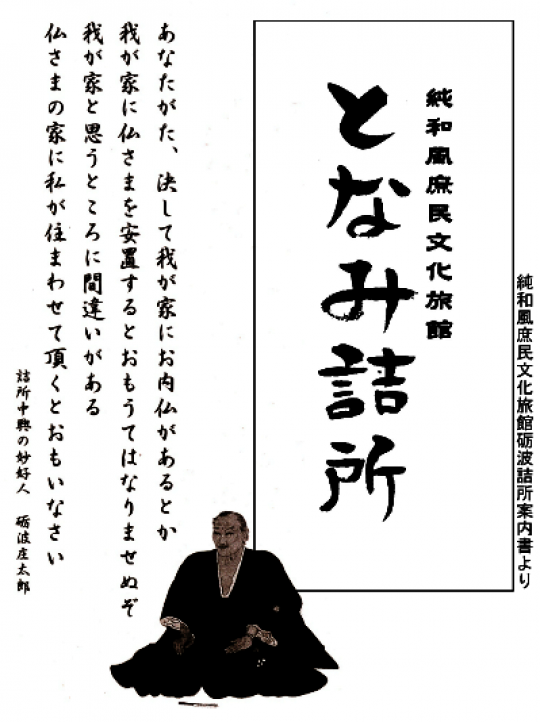 純和風庶民文化旅館砺波詰所案内書より
純和風庶民文化旅館
となみ詰所
あなたがた、決して我が家にお内仏があるとか
我が家に仏さまを安置するとおもうてはなりませぬぞ
我が家と思うところに間違いがある
仏さまの家に私が住まわせて頂くとおもいなさい
詰所中興の妙好人 砺波庄太郎